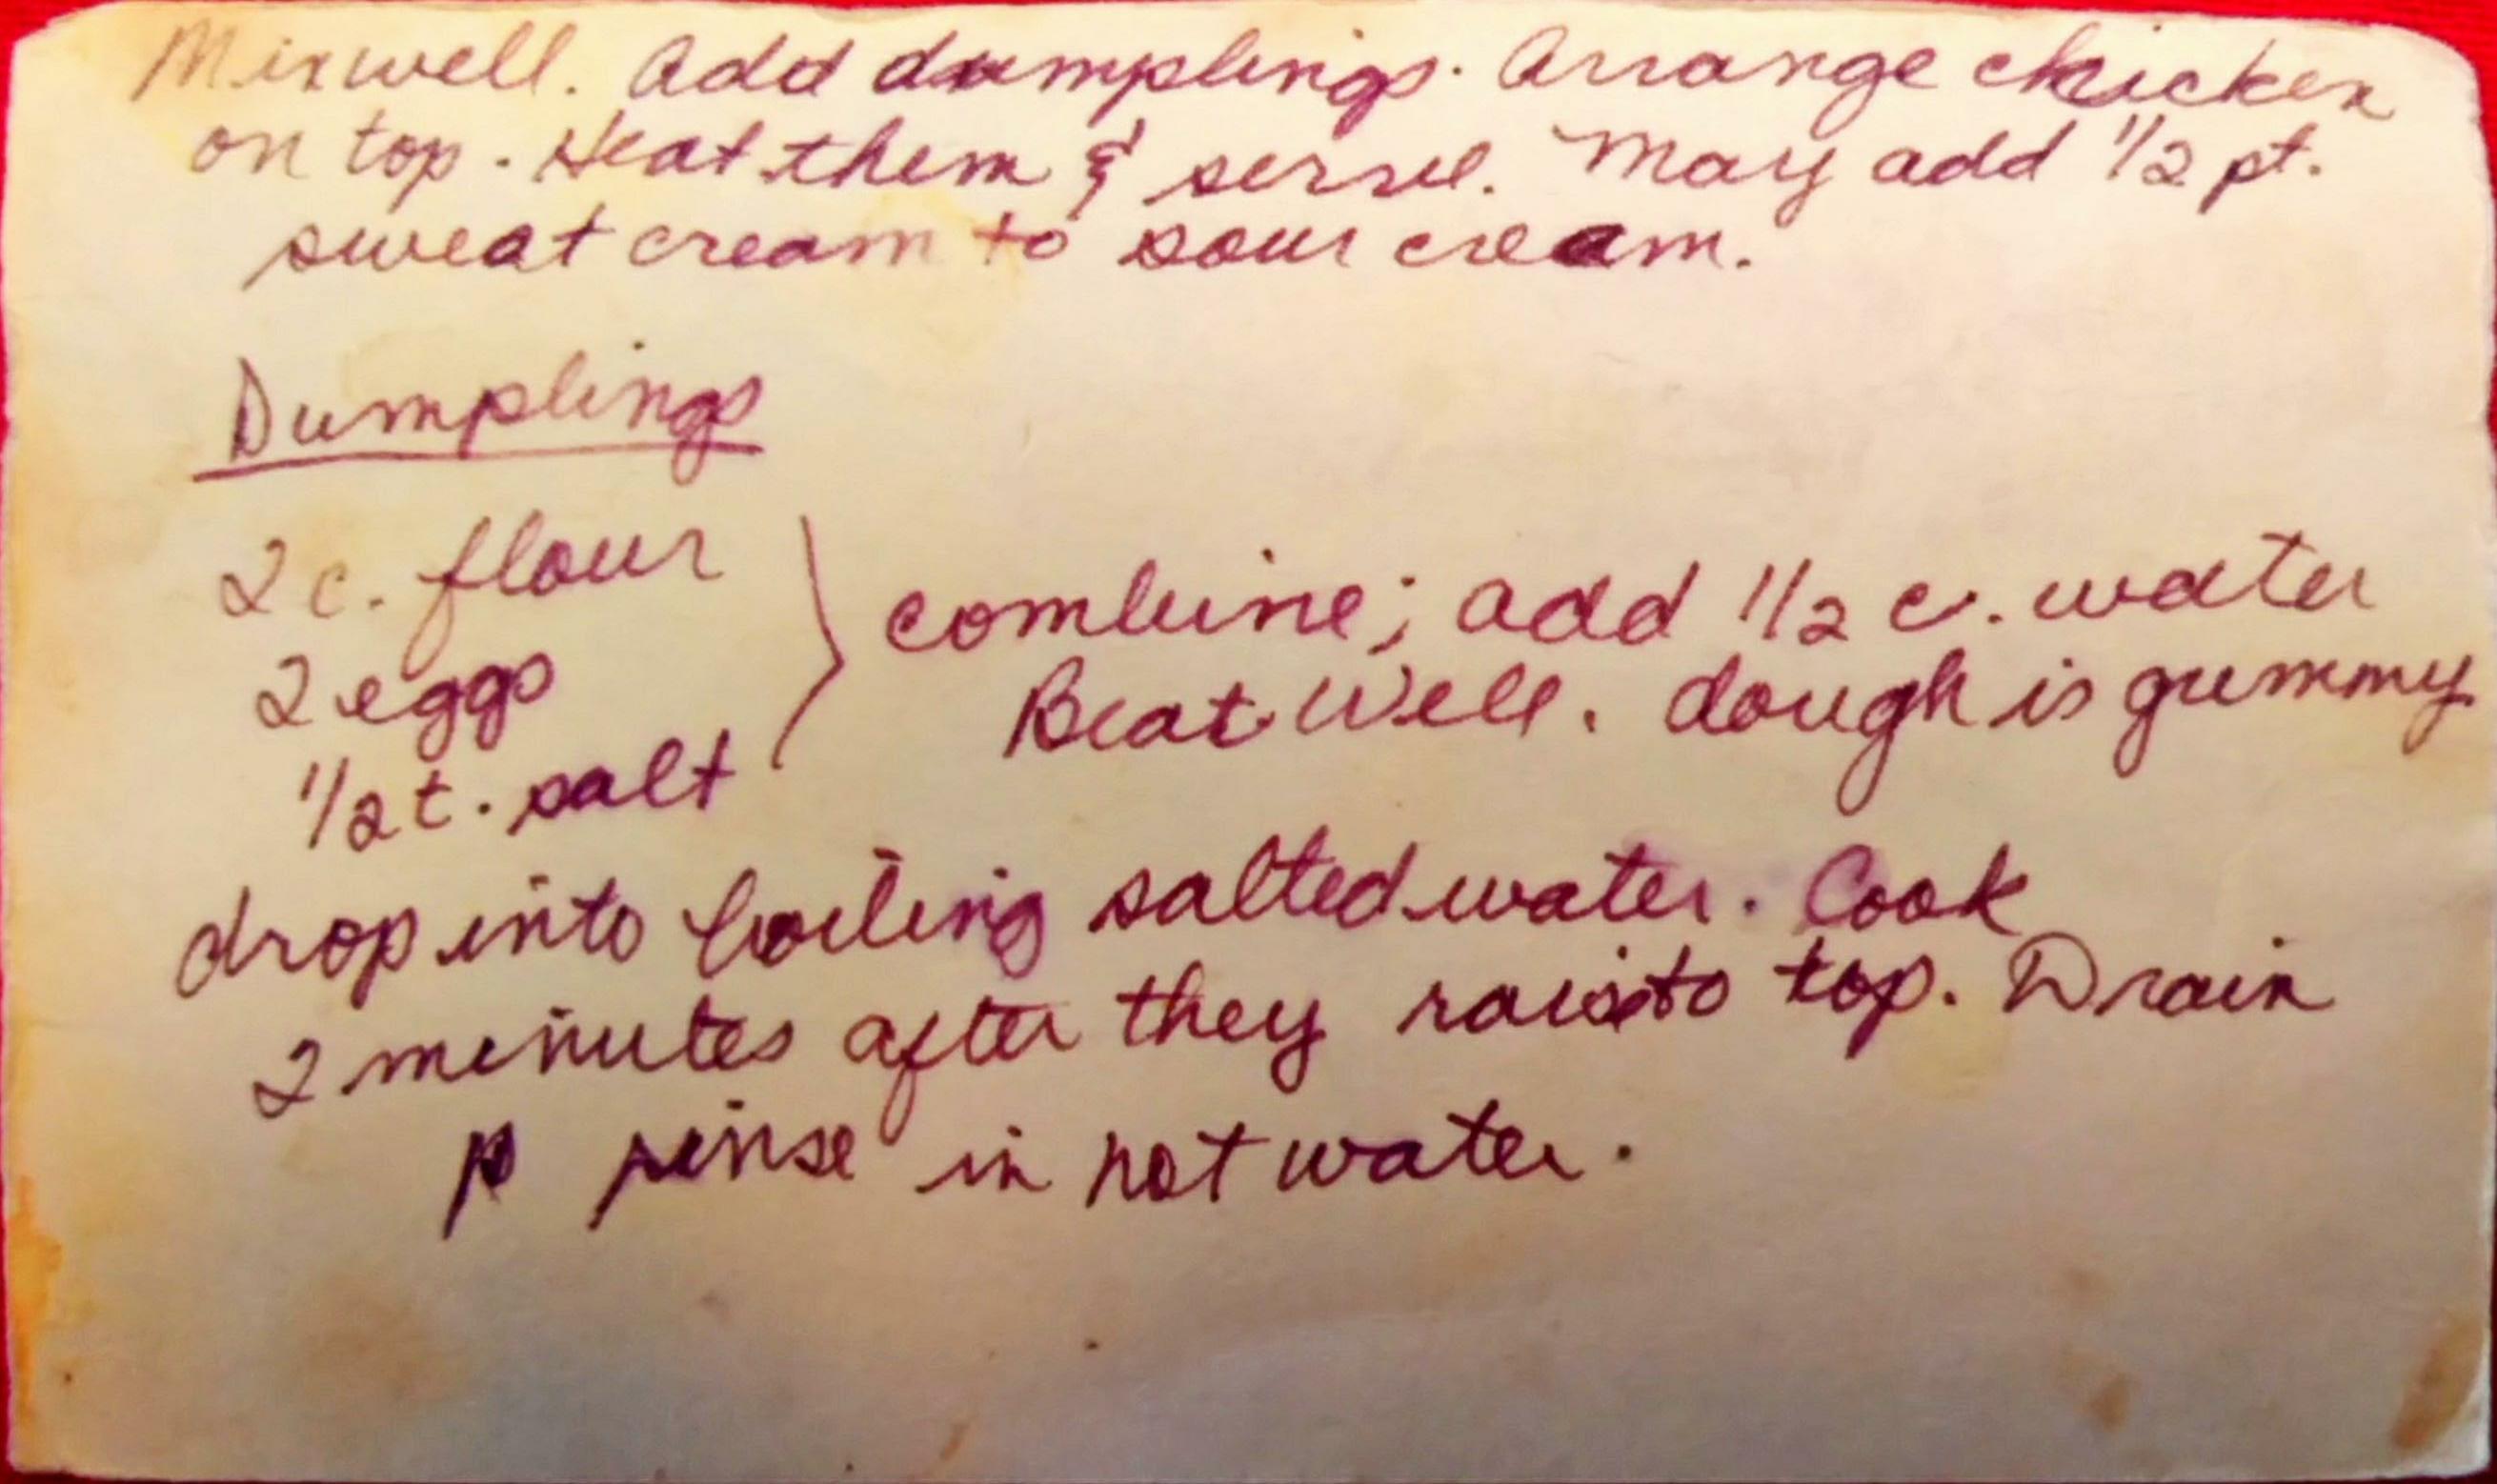 Mix well. Add dumplings. Arrange chicken
on top. Heat them & serve. May add 1/2 pt.
sweat cream to sour cream.
Dumplings
2 c. flour
2 eggs
1/2 t. salt
combine; add 1/2 c. water
Beat Well. dough is gummy
drop into boiling salted water. Cook
2 minutes after they raise to top. Drain
rinse in hot water.